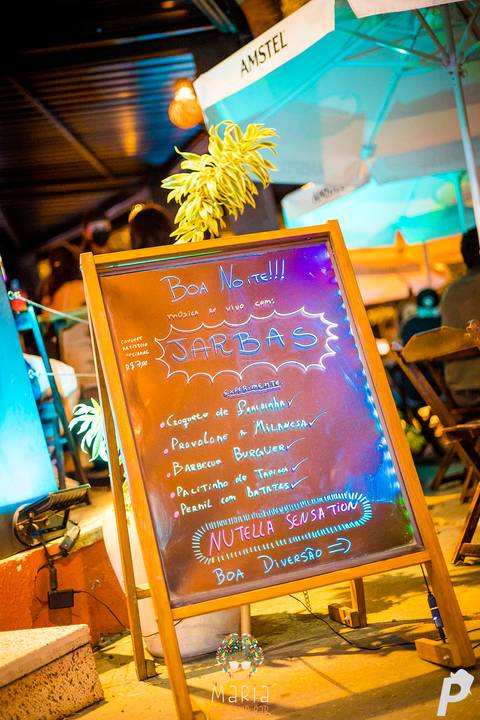 AMSTEL
BOA NOITE!!!
MÚSICA AO VIVO COM:
JARBAS
COUVERT
ARTÍSTICO
OPCIONAL
R$ 7,00
EXPERIMENTE
• Croquete de
• Provolone a Milanesa ✓
• Barbecue Burguer ✓
• Palitinho de Tapioca ✓
• Pernil com Batatas ✓
NUTELLA SENSATION
BOA DIVERSÃO ⇒
MARIA
BAR
P